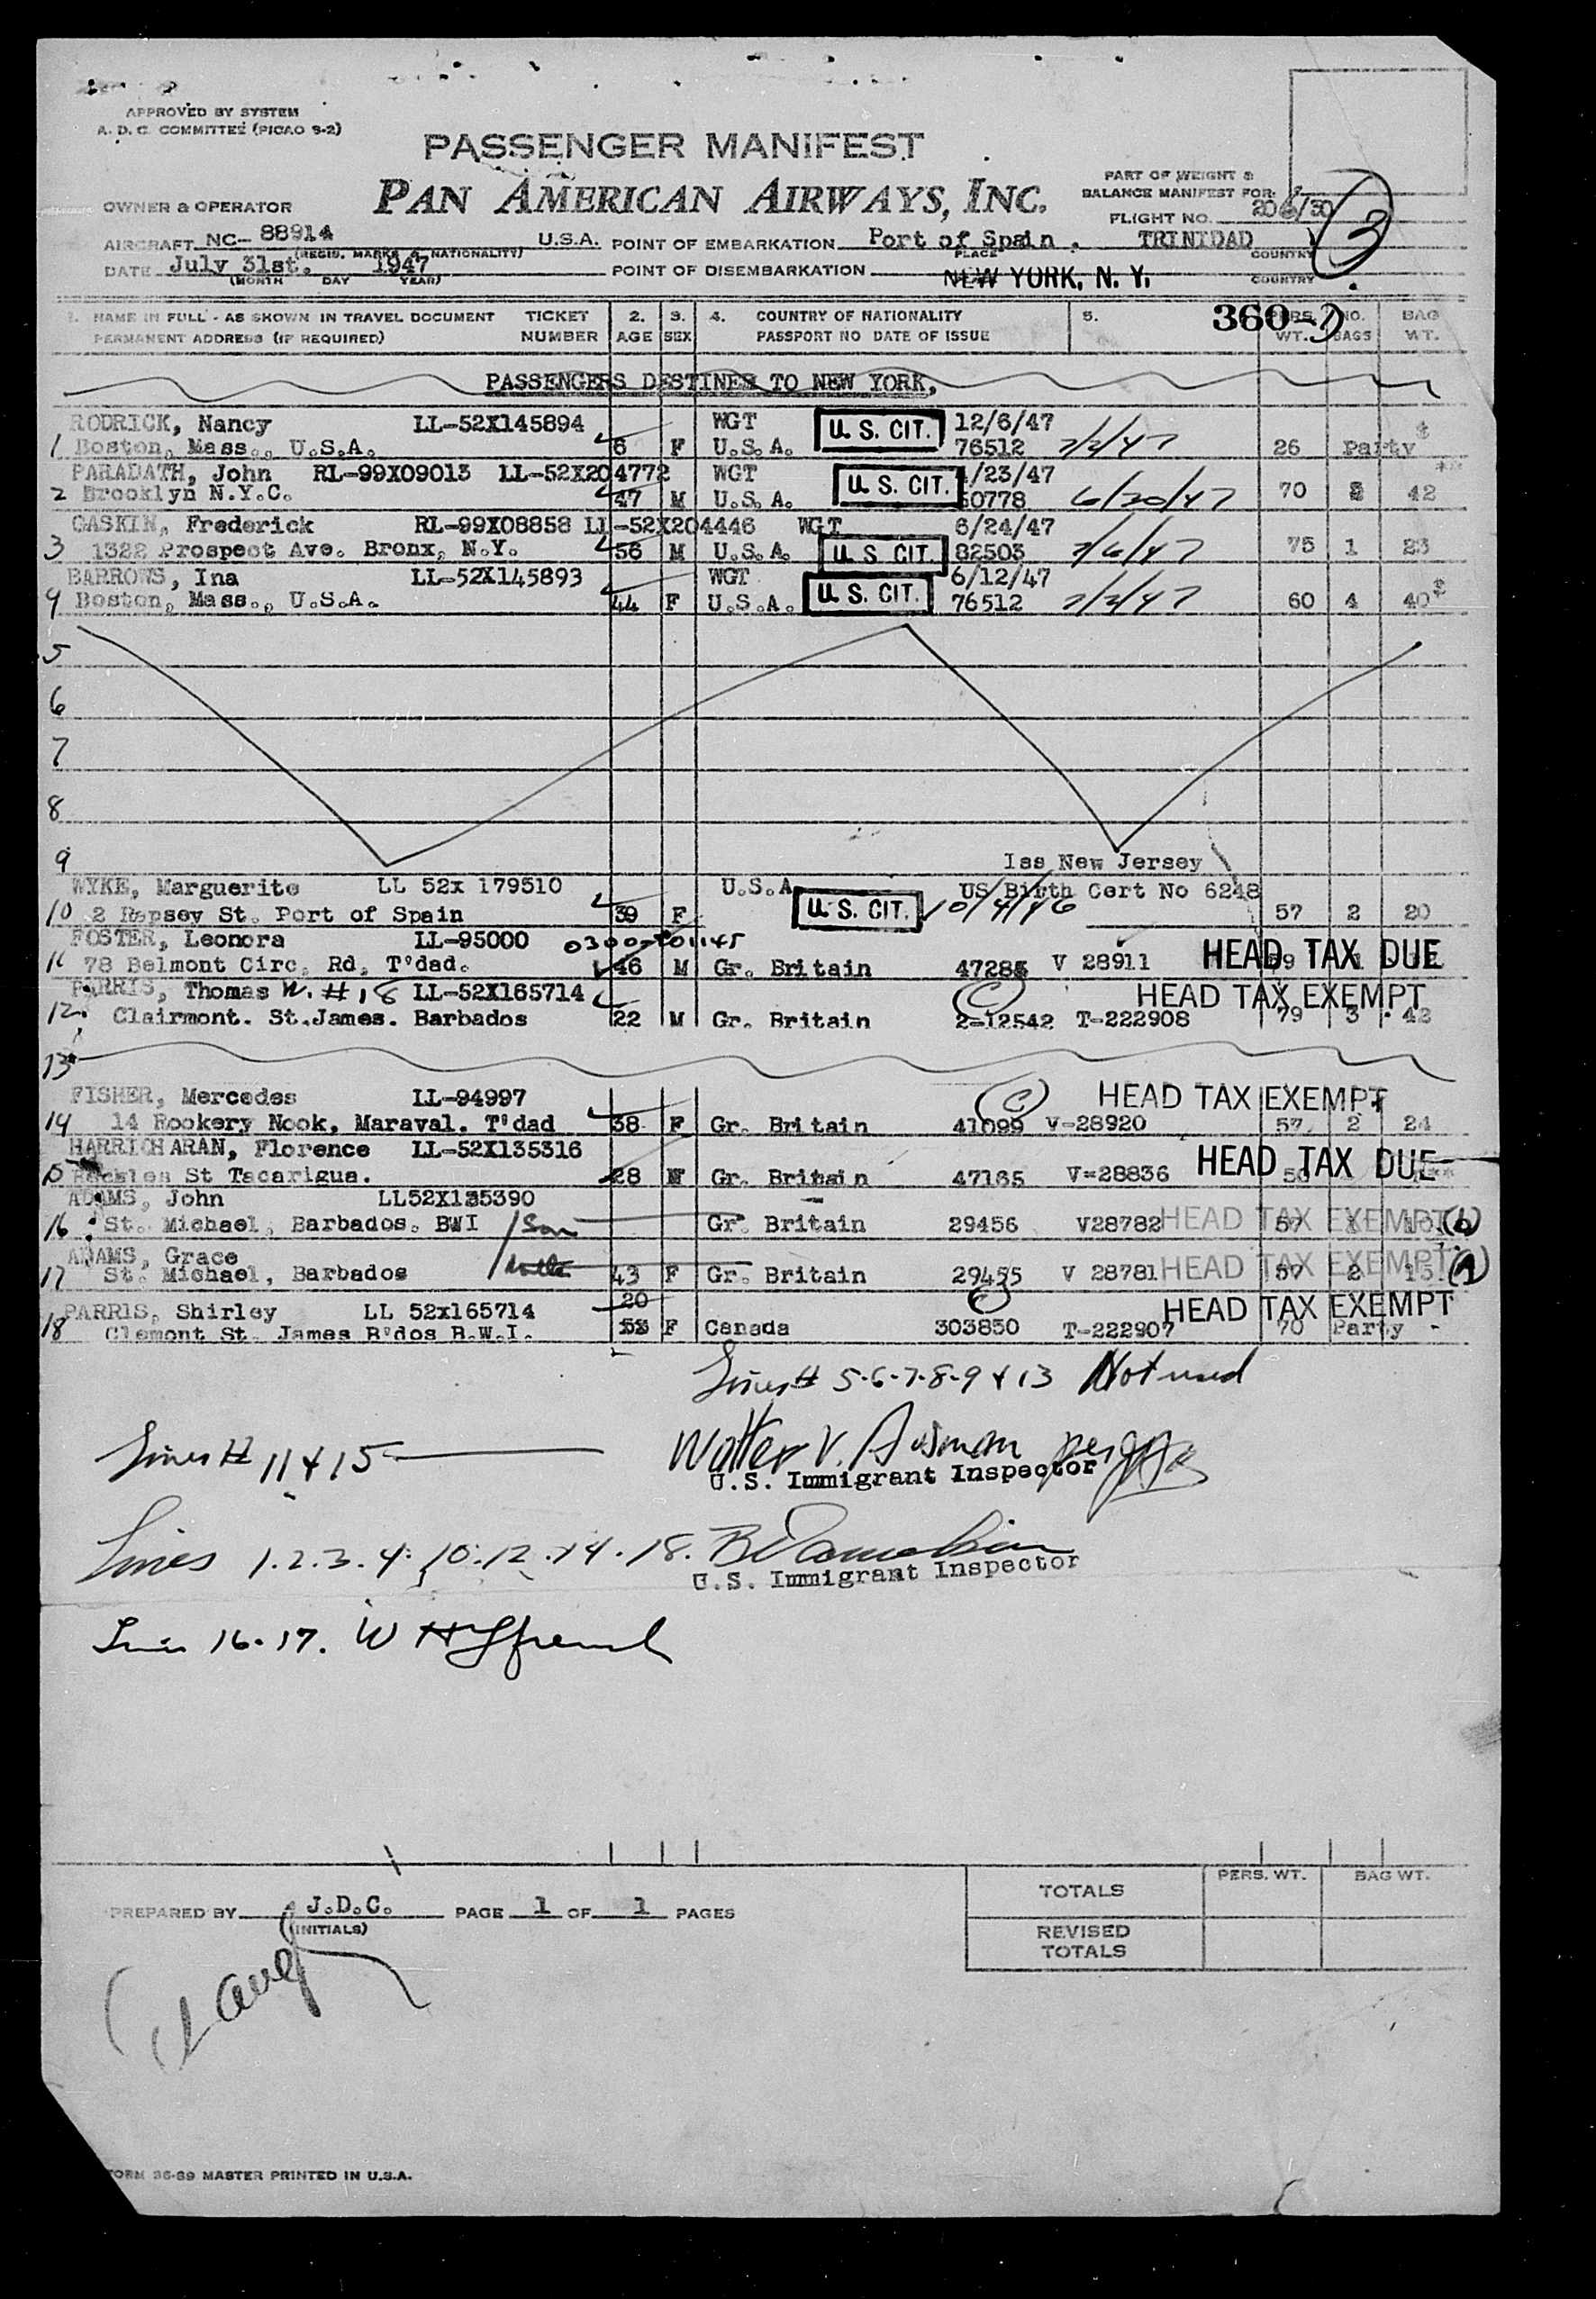 APPROVED BY SYSTEM
A. D. C. COMMITTEE (PICAO 9-2)
PASSENGER MANIFEST
PAN AMERICAN AIRWAYS, INC.
PART OF WEIGHT &
BALANCE MANIFEST FOR
OWNER & OPERATOR
FLIGHT NO.
3
AIRCRAFT NC- 88914 U.S.A. POINT OF EMBARKATION Port of Spain, TRINIDAD
(REGIS. MARKS & NATIONALITY) PLACE COUNTRY
DATE July 31st. 1947 POINT OF DISEMBARKATION NEW YORK, N. Y.
(MONTH DAY YEAR) COUNTRY
360-
1. NAME IN FULL - AS SHOWN IN TRAVEL DOCUMENT TICKET 2. 3. 4. COUNTRY OF NATIONALITY 5. PERS. NO. BAG
PERMANENT ADDRESS (IF REQUIRED) NUMBER AGE SEX PASSPORT NO DATE OF ISSUE WT. BAGS WT.
PASSENGERS DESTINED TO NEW YORK,
RODRICK, Nancy LL-52X145894 WGT U. S. CIT. 12/6/47
1 Boston, Mass., U.S.A. 6 F U.S.A. 76512 7/2/47 26 Party
PARADATH, John RL-99X09013 LL-52X204772 WGT U. S. CIT. /23/47
2 Brooklyn N.Y.C. 47 M U.S.A. 0778 6/20/47 70 42
GASKIN, Frederick RL-99X08858 LL-52X204446 WGT 6/24/47
3 1322 Prospect Ave. Bronx, N.Y. 56 M U.S.A. U. S. CIT. 82503 7/6/47 75 1 23
BARROWS, Ina LL-52X145893 WGT U. S. CIT. 6/12/47
4 Boston, Mass., U.S.A. 44 F U.S.A. 76512 7/2/47 60 4 40
5
6
7
8
9 Iss New Jersey
WYKE, Marguerite LL 52x 179510 U.S.A US Birth Cert No 6248
10 2 St. Port of Spain 39 F U. S. CIT. 10/4/46 57 2 20
FOSTER, Leonora LL-95000
11 78 Belmont Circ, Rd, T'dad. 46 M Gr. Britain V 28911 HEAD TAX DUE
PARRIS, Thomas W. #18 LL-52X165714 (C) HEAD TAX EXEMPT
12 Clairmont. St.James. Barbados 22 M Gr. Britain 2-12542 T-222908 79 3 42
13
FISHER, Mercedes LL-94997 (C) HEAD TAX EXEMPT
14 14 Rookery Nook, Maraval. T'dad 38 F Gr. Britain 41099 V-28920 57 2 24
HARRICHARAN, Florence LL-52X135316
15 St Tacarigua. 28 Gr. Britain 47165 V=28836 HEAD TAX DUE
ADAMS, John LL52X135390
16 St. Michael, Barbados. BWI /Son Gr. Britain 29456 V28782 HEAD TAX EXEMPT
ADAMS, Grace
17 St. Michael, Barbados 43 F Gr. Britain 29455 V 28781 HEAD TAX EXEMPT
PARRIS, Shirley LL 52x165714 20 HEAD TAX EXEMPT
18 Clemont St. James B'dos B.W.I. F Canada 303850 T-222907 70 Party
Lines # 5-6-7-8-9 & 13 Not used
Lines # 11 & 15
Walter V.
U.S. Immigrant Inspector
Lines 1.2.3.4. 10.12.14.18.
U.S. Immigrant Inspector
Lines 16-17.
PERS. WT. BAG WT.
TOTALS
PREPARED BY J.D.C. PAGE 1 OF 1 PAGES
(INITIALS)
REVISED
TOTALS
FORM 36-89 MASTER PRINTED IN U.S.A.